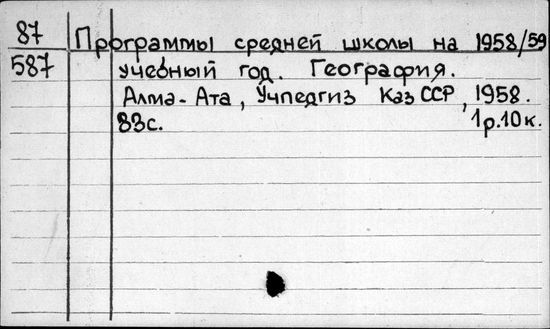 87
587
Программы средней школы на 1958/59
учебный год. География.
Алма-Ата, Учпедгиз КазССР, 1958.
83с. 1р.10к.